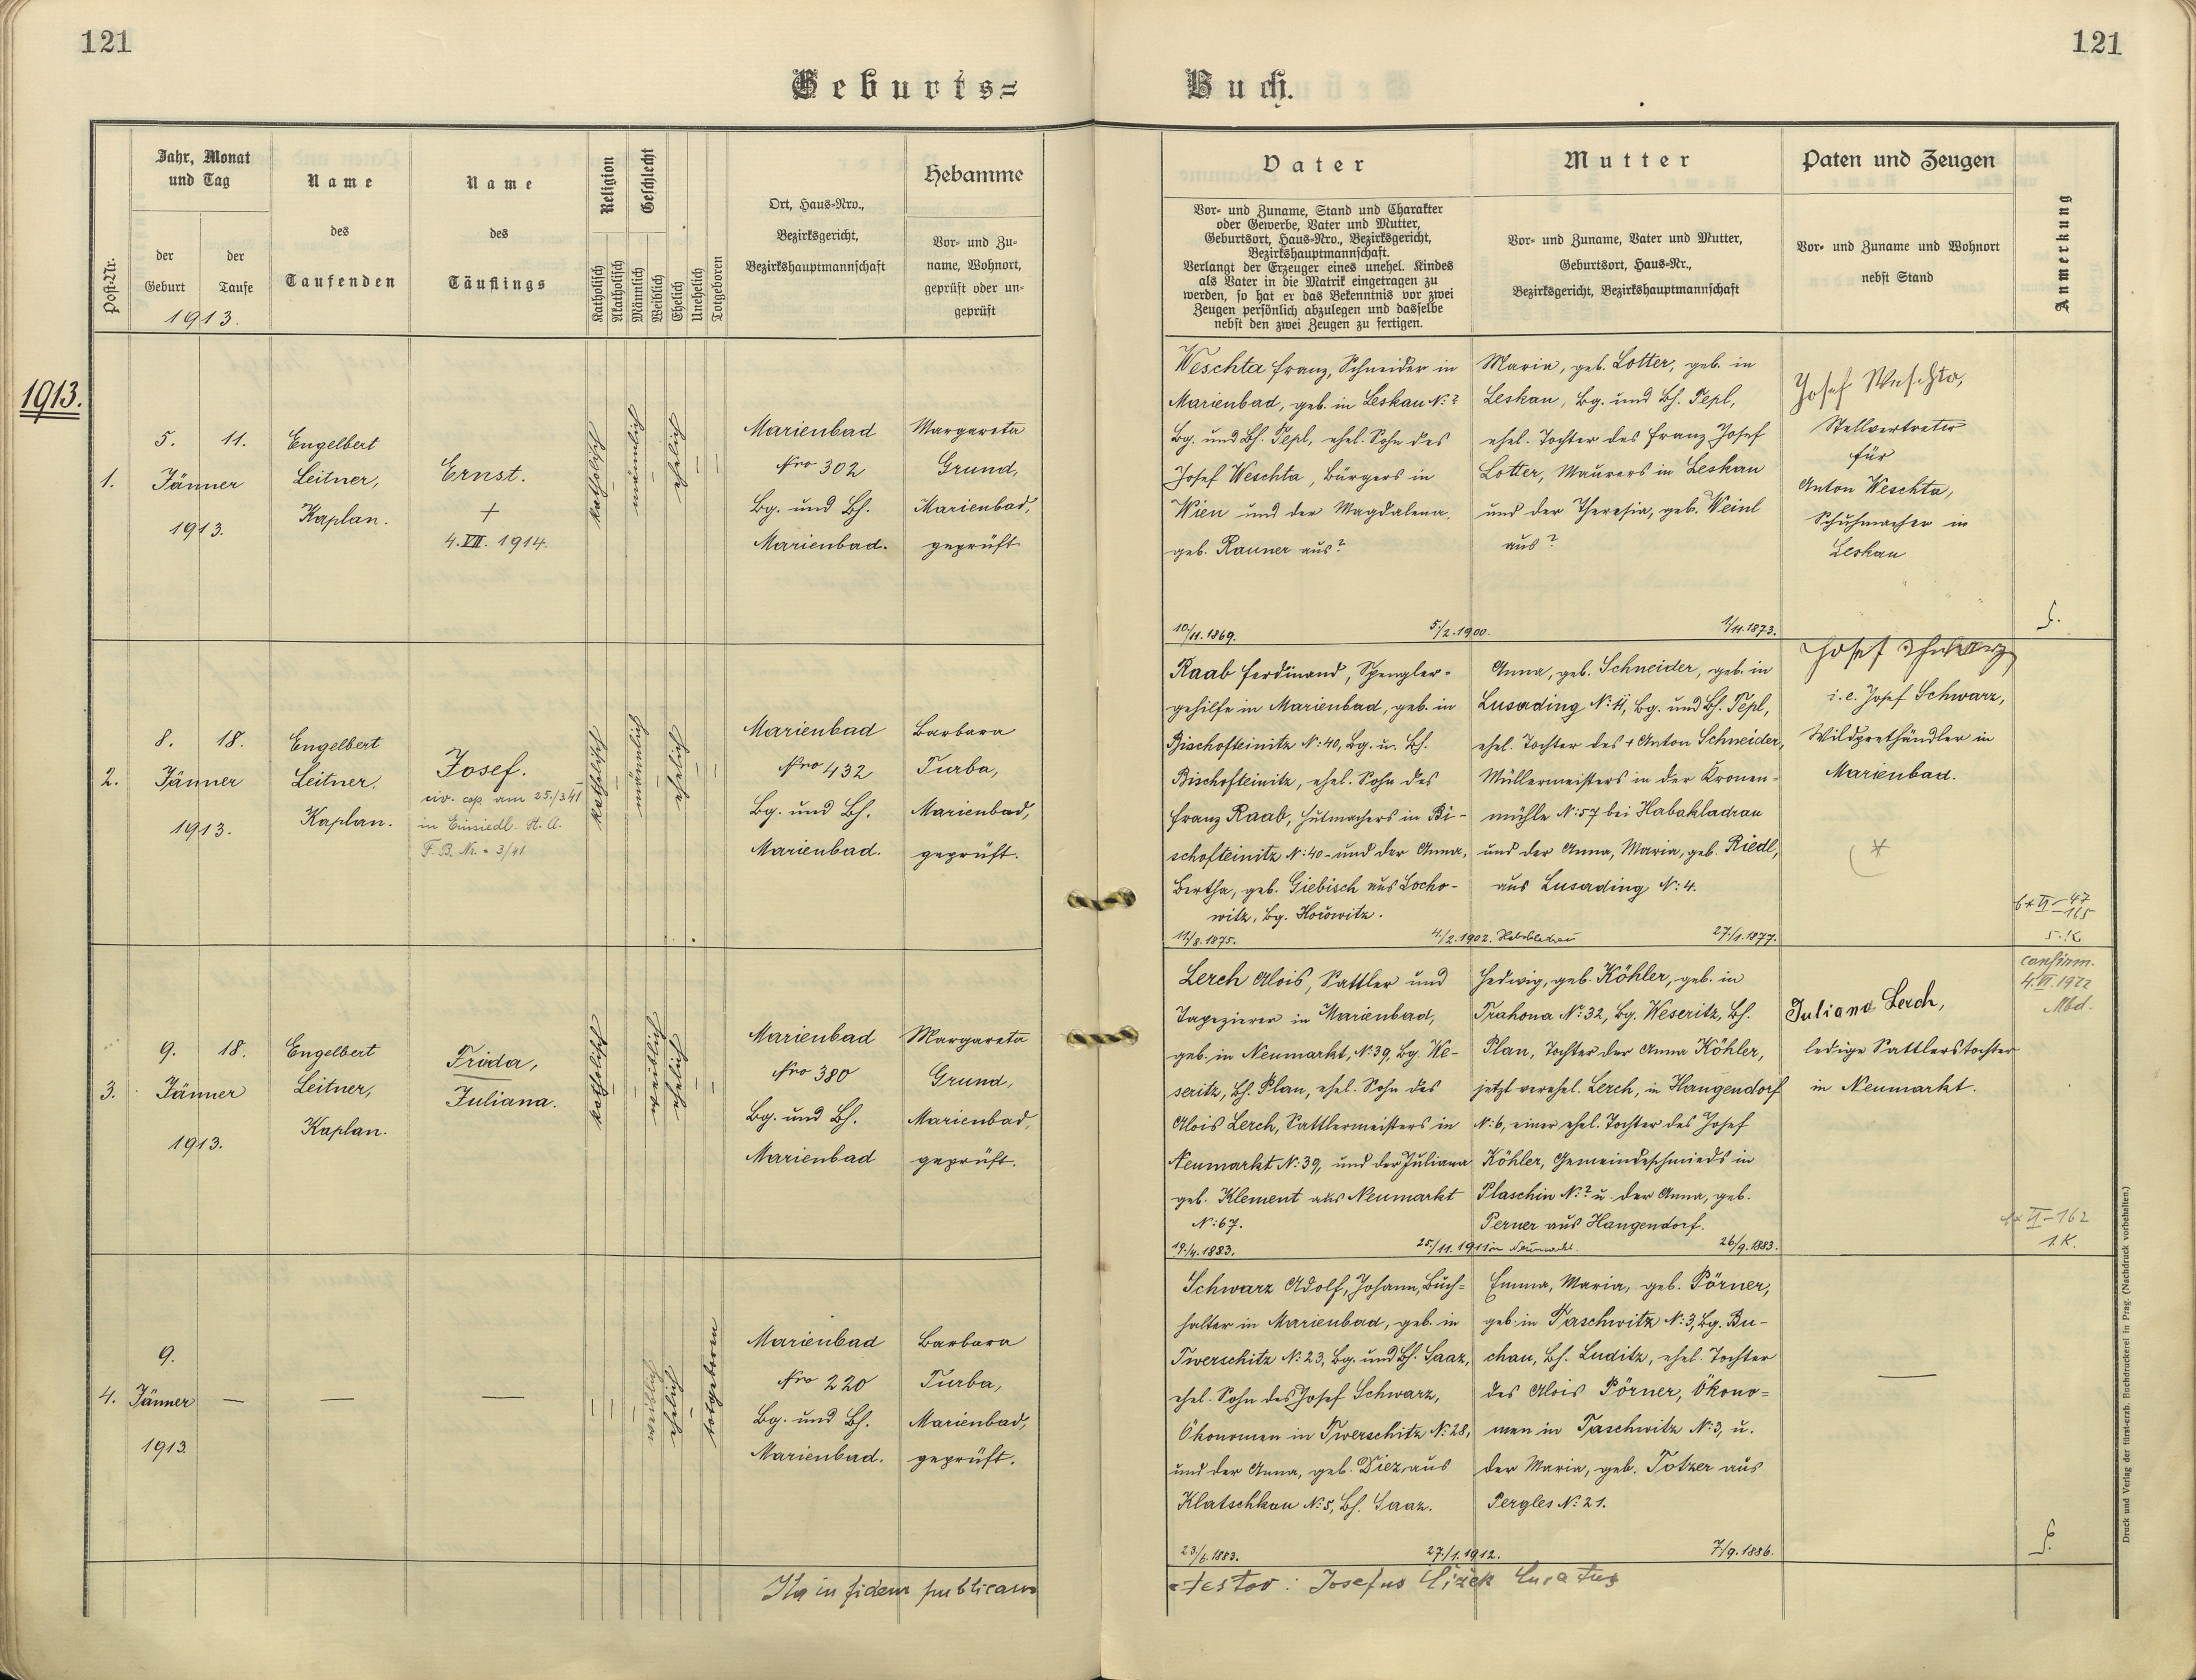 121
121
Geburts=
Buch.
Post-Nr.
Jahr, Monat
und Tag
der
Geburt
der
Taufe
1913.
Name
des
Taufenden
Name
des
Täuflings
Religion
Katholisch
Akatholisch
Geschlecht
Männlich
Weiblich
Ehelich
Unehelich
Totgeboren
Ort, Haus=Nro.,
Bezirksgericht,
Bezirkshauptmannschaft
Hebamme
Vor= und Zu=
name, Wohnort,
geprüft oder un=
geprüft
Vater
Vor= und Zuname, Stand und Charakter
oder Gewerbe, Vater und Mutter,
Geburtsort, Haus=Nro., Bezirksgericht,
Bezirkshauptmannschaft.
Verlangt der Erzeuger eines unehel. Kindes
als Vater in die Matrik eingetragen zu
werden, so hat er das Bekenntnis vor zwei
Zeugen persönlich abzulegen und dasselbe
nebst den zwei Zeugen zu fertigen.
Mutter
Vor= und Zuname, Vater und Mutter,
Geburtsort, Haus=Nr.,
Bezirksgericht, Bezirkshauptmannschaft
Paten und Zeugen
Vor= und Zuname und Wohnort
nebst Stand
Anmerkung
1913.
1.
5. 11.
Jänner
1913.
Engelbert
Leitner,
Kaplan.
Ernst.
+
4. VII. 1914.
katholisch
–
männlich
–
ehelich
–
–
Marienbad
Nro 302
Bg. und Bh.
Marienbad.
Margareta
Grund,
Marienbad,
geprüft
Weschta Franz, Schneider in
Marienbad, geb. in Leskau N:?
Bg. und Bh. Tepl, ehel. Sohn des
Josef Weschta, Bürgers in
Wien und der Magdalena,
geb. Rauner aus?
10/11. 1869.
5./2. 1900.
Maria, geb. Lotter, geb. in
Leskau, Bg. und Bh. Tepl,
ehel. Tochter des Franz Josef
Lotter, Maurers in Leskau
und der Theresia, geb. Weinl
aus?
1/11. 1873.
Josef Weschta,
Stellvertreter
für
Anton Weschta,
Schuhmacher in
Leskau
2.
8. 18.
Jänner
1913.
Engelbert
Leitner,
Kaplan.
Josef.
civ. cop am 25./3 41
in Einsiedl. St. A.
F. B. Nr. 3/41
katholisch
–
männlich
–
ehelich
–
–
Marienbad
Nro 432
Bg. und Bh.
Marienbad.
Barbara
Turba,
Marienbad,
geprüft.
Raab Ferdinand, Spengler=
gehilfe in Marienbad, geb. in
Bischofteinitz N:40, Bg. u. Bh.
Bischofteinitz, ehel. Sohn des
Franz Raab, Hutmachers in Bi-
schofteinitz N:40 und der Anna,
Bertha, geb. Giebisch aus Locho-
witz, Bg. Hořowitz.
11/8. 1875.
4./2. 1902.
Anna, geb. Schneider, geb. in
Lusading N:4, Bg. und Bh. Tepl,
ehel. Tochter des + Anton Schneider,
Müllermeisters in der Kronen=
mühle N:57 bei Habakladrau
und der Anna, Maria, geb. Riedl,
aus Lusading N:4.
27./1. 1877.
Josef Schwarz
i. e. Josef Schwarz,
Wildprethändler in
Marienbad.
3.
9. 18.
Jänner
1913.
Engelbert
Leitner,
Kaplan.
Frida,
Juliana.
katholisch
–
–
weiblich
ehelich
–
–
Marienbad
Nro 380
Bg. und Bh.
Marienbad
Margareta
Grund,
Marienbad,
geprüft.
Lerch Alois, Sattler und
Tapezierer in Marienbad,
geb. in Neumarkt, N:39, Bg. We-
seritz, Bh. Plan, ehel. Sohn des
Alois Lerch, Sattlermeisters in
Neumarkt N:39, und der Juliana
geb. Klement aus Neumarkt
N:67.
19./4. 1883.
25./11. 1911 in Neumarkt.
Hedwig, geb. Köhler, geb. in
Trahona N:32, Bg. Weseritz, Bh.
Plan, Tochter der Anna Köhler,
jetzt verehel. Lerch, in Hangendorf
N:6, einer ehel. Tochter des Josef
Köhler, Gemeindeschmieds in
Plaschin N:? u. der Anna, geb.
Perner aus Hangendorf.
26/9. 1883.
Juliana Lerch,
ledige Sattlerstochter
in Neumarkt.
confirm.
4. VI. 1922
Mbd.
4.
9.
Jänner
1913
—
—
—
–
–
–
weiblich
ehelich
–
totgeboren
Marienbad
Nro 220
Bg. und Bh.
Marienbad.
Barbara
Turba,
Marienbad,
geprüft.
Schwarz Adolf, Johann, Buch=
halter in Marienbad, geb. in
Twerschitz N:23, Bg. und Bh. Saaz,
ehel. Sohn des Josef Schwarz,
Ökonomen in Twerschitz N:28,
und der Anna, geb. Diez aus
Klatschkau N:5, Bh. Saaz.
23/6. 1883.
27./1. 1912.
Emma, Maria, geb. Pörner,
geb. in Taschwitz N:3, Bg. Bu-
chau, Bh. Luditz, ehel. Tochter
des Alois Pörner, Ökono=
men in Taschwitz N:3, u.
der Maria, geb. Totzer aus
Pergles N:21.
7/9. 1886.
—
Ita in fidem publicam
testor: Josefus Čížek Curatus
Druck und Verlag der fürst-erzb. Buchdruckerei in Prag. (Nachdruck vorbehalten.)